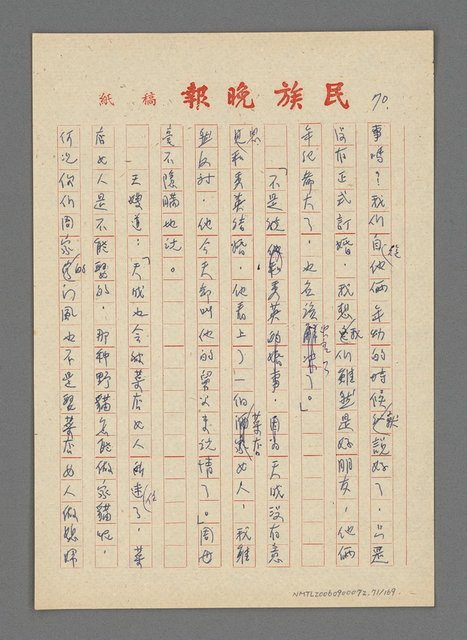 民族晚報 稿紙
70.
事嗎?我們自從他倆年幼的時候就說好了,只是
沒有正式訂婚。我想我們雖然是好朋友,他倆
年紀都大了,也應該
「不是從秀英的婚事,因為天成沒有意
思和秀英結婚,他看上了一個菜店女人,我雖
然反對,他今天卻叫他的舅父來說情了。」周母
毫不隱瞞地說。
王嫂道:「天成也會被菜店女人所迷了,菜
店女人是不能娶的,那種野貓怎能做家貓呢,
何況你們周家的門風也不是娶菜店女人做媳婦
NMTL20060900072_71/169